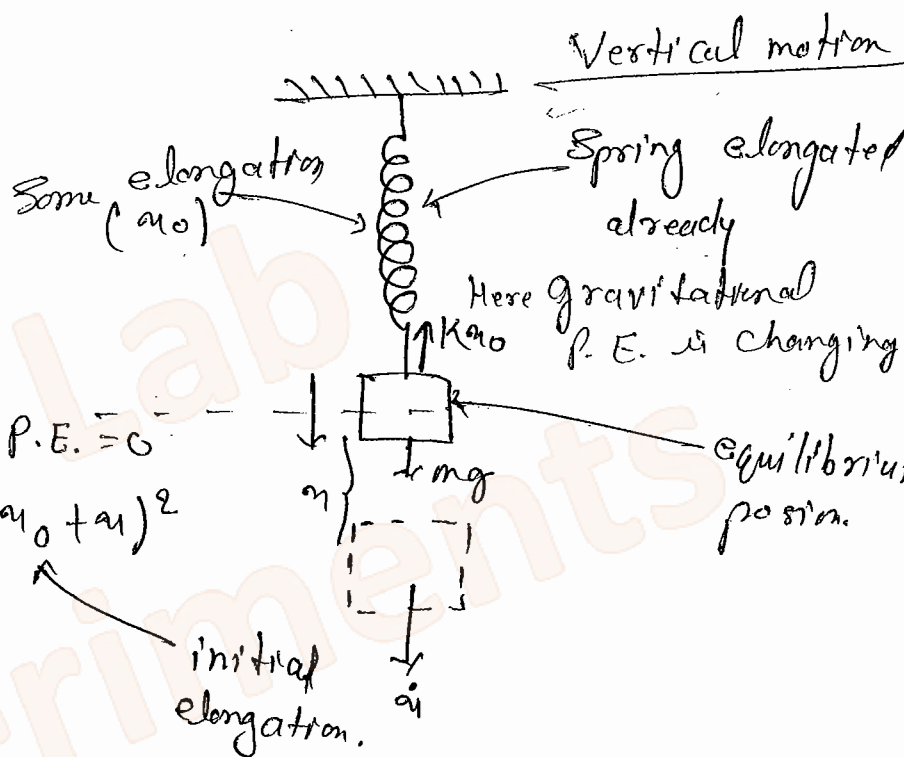 Vertical motion
Some elongation
(x0)
Spring elongated
already
Here gravitational
P. E. is changing
Kx0
P.E. = 0
mg
equilibrium
posion.
x
x0 + x)²
initial
elongation.
ẋ
Lab
riments